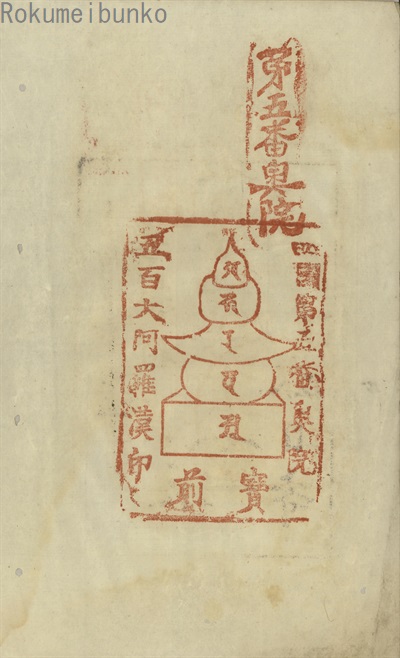 Rokumeibunko
第五番奥院
四國第五番奥院
寶前
五百大阿羅漢印